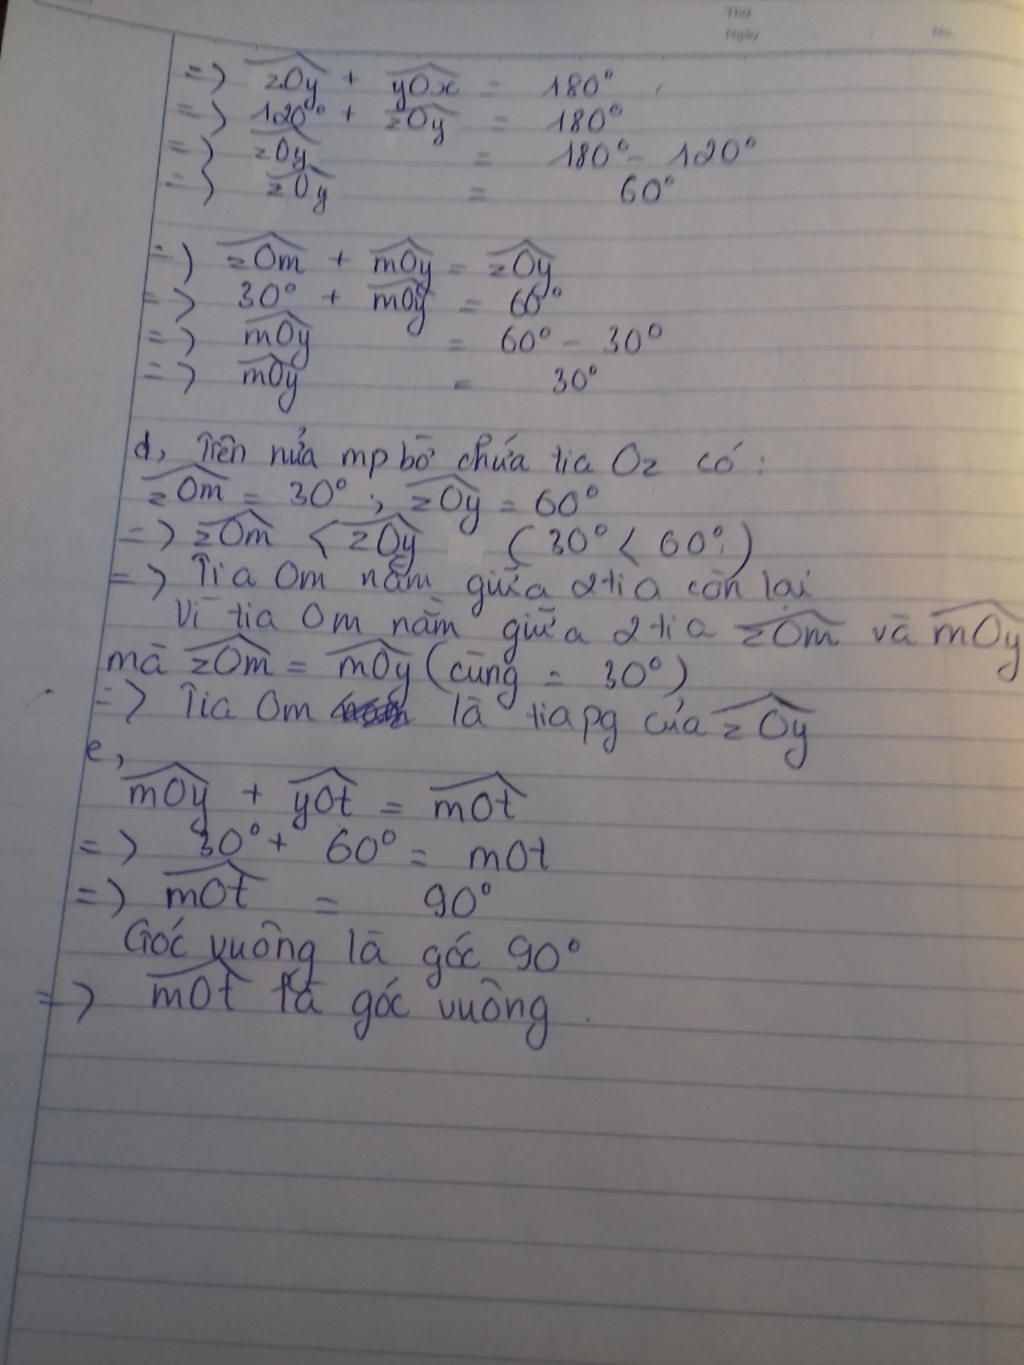 Thứ
Ngày No.
=> zOy + yOx = 180°
=> 120° + zOy = 180°
=> zOy = 180° - 120°
=> zOy = 60°
=> zOm + mOy = zOy
=> 30° + mOy = 60°
=> mOy = 60° - 30°
=> mOy = 30°
d, Trên nửa mp bờ chứa tia Oz có:
zOm = 30° ; zOy = 60°
=> zOm < zOy (30° < 60°)
=> Tia Om nằm giữa 2 tia còn lại
Vì tia Om nằm giữa 2 tia zOm và mOy
mà zOm = mOy (cùng = 30°)
=> Tia Om là tia pg của zOy
e,
mOy + yOt = mOt
=> 30° + 60° = mOt
=> mOt = 90°
Góc vuông là góc 90°
=> mOt là góc vuông.